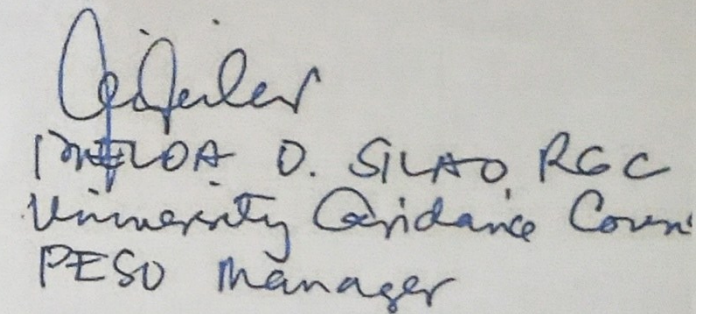 IMELDA D. SILAO, RGC
University Guidance Coun
PESO Manager